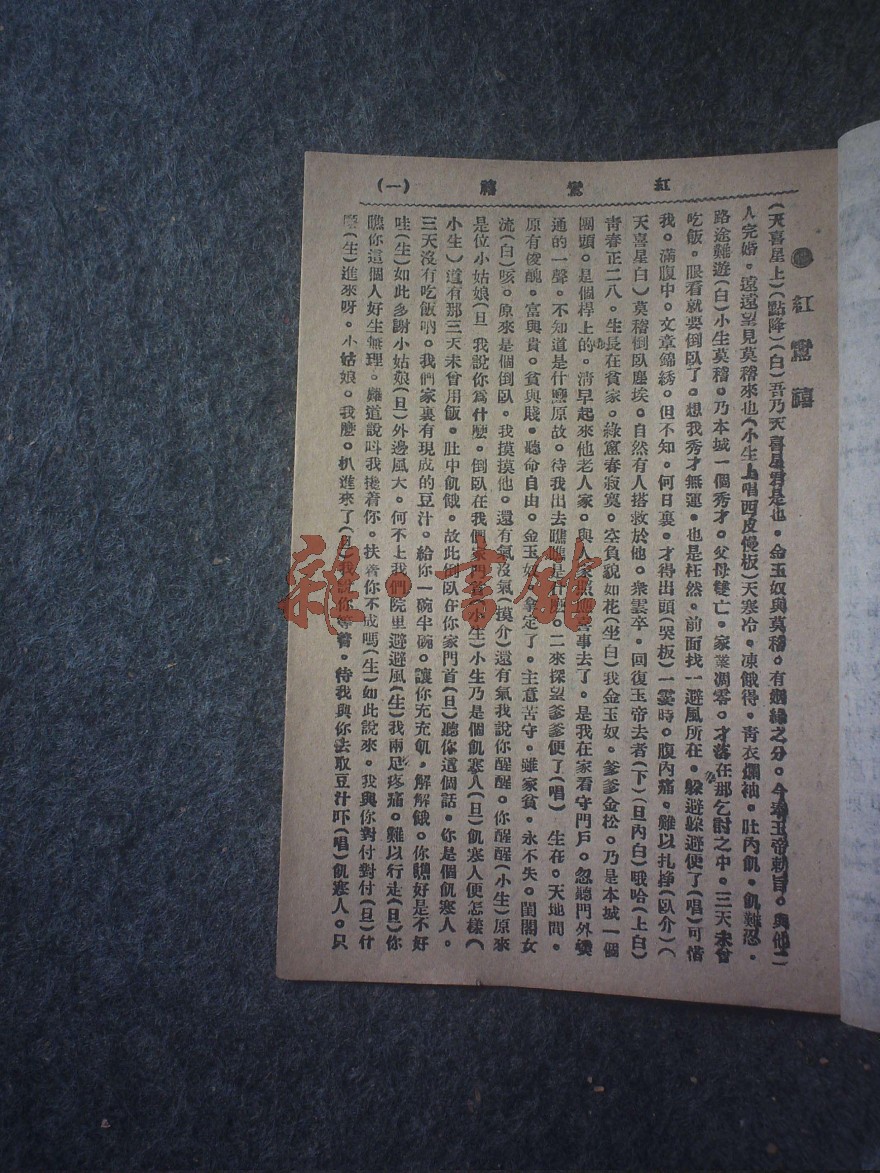 紅鸞禧 (一)
紅鸞禧
(天喜星上)(點降)(白)吾乃天喜星君是也。金玉奴與莫稽。有姻緣之分。今奉玉帝勅旨。與他二
人完婚。遠遠望見莫稽來也(小生上唱西皮慢板)天寒冷。凍餓得。靑衣爛袖。肚內飢。飢難忍。
路途難遊(白)小生莫稽。乃本城一個秀才。父母雙亡。家業凋零。才落在那乞討之中。三天未曾
吃飯。眼看就要倒臥了。想我秀才無運。也是枉然。前面找一避風所在。躱避躱避便了(唱)可惜
我。滿腹中。文章錦綉。但不知。何日裏。才得出頭(哭板)一霎時。腹內痛。難以扎掙(臥介)(
天喜星白)莫稽倒臥塵埃。自然有人搭救於他。衆雲卒。回復玉帝去者(下)(旦內白)哦哈(上白)
靑春正二八。生長在貧家。綠窻春寂寞。空負貌如花(坐白)我金玉奴。爹爹金松。乃是本城一個
團頭。是個桿上的。淸早起來他老人家。與人家照應喜事去了。是我在家看守門戶。忽聽門外噗
通的一聲。不知道是什麼原故。待我出去瞧瞧是什麼。二來探望爹爹便了(唱) 生在。天地間。
原有俊醜。富與貴。貧與賤。聽命自由。金玉奴。拿定了。主意苦守。雖家貧。永不失。閨閣女
流(白)咳。原來是個倒臥。我摸摸他。還有氣沒氣(摸介)還有氣我說你醒醒。你醒醒(小生)原來
是位小姑娘(旦 我說你爲什麼。倒臥在我們家門首(小生)小生乃是個飢寒人(旦)飢寒人便怎樣(
小生)道有那三天未曾用飯。肚中飢餓。故此倒臥在你家門首(旦)聽你這個話。你是個飢寒人。
三天沒有吃飯吶。我們家裏有現成的豆汁。給你一碗半碗。讓你充充飢。解解餓。你瞧好是不好
哇(生)如此多謝小姑娘(旦)外邊風大。何不上我們院里避避風(生)我兩足疼痛。難以行走(旦)你
瞧你這個人好生無理。難道說呌我攙着你。扶着你不成嗎(生)如此說來。我與你對付對付(旦)什
麼(生)進來呀。小姑娘。我麽。扒進來了(旦)我說你等着。待我與你去取豆汁吓(唱)飢寒人。只
雜·書館